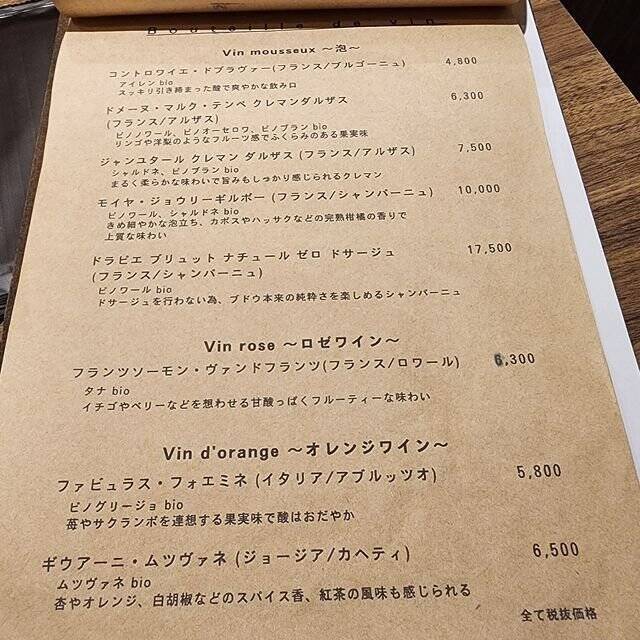 Bouteille de vin
Vin mousseux ～泡～
コントロワイエ・ドブラヴァー(フランス/ブルゴーニュ) 4,800
アイレン bio
スッキリ引き締まった酸で爽やかな飲み口
ドメーヌ・マルク・テンペ クレマンダルザス 6,300
(フランス/アルザス)
ピノノワール、ピノオーセロワ、ピノブラン bio
リンゴや洋梨のようなフルーツ感でふくらみのある果実味
ジャンユタール クレマン ダルザス (フランス/アルザス) 7,500
シャルドネ、ピノブラン bio
まるく柔らかな味わいで旨みもしっかり感じられるクレマン
モイヤ・ジョウリーギルボー (フランス/シャンパーニュ) 10,000
ピノワール、シャルドネ bio
きめ細やかな泡立ち、カボスやハッサクなどの完熟柑橘の香りで
上質な味わい
ドラピエ ブリュット ナチュール ゼロ ドサージュ 17,500
(フランス/シャンパーニュ)
ピノワール bio
ドサージュを行わない為、ブドウ本来の純粋さを楽しめるシャンパーニュ
Vin rose ～ロゼワイン～
フランツソーモン・ヴァンドフランツ(フランス/ロワール) 6,300
タナ bio
イチゴやベリーなどを想わせる甘酸っぱくフルーティーな味わい
Vin d'orange ～オレンジワイン～
ファビュラス・フォエミネ (イタリア/アブルッツオ) 5,800
ピノグリージョ bio
苺やサクランボを連想する果実味で酸はおだやか
ギウアーニ・ムツヴァネ (ジョージア/カヘティ) 6,500
ムツヴァネ bio
杏やオレンジ、白胡椒などのスパイス香、紅茶の風味も感じられる
全て税抜価格